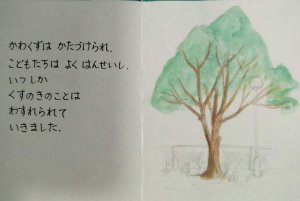 かわくずは かたづけられ、
こどもたちは よく はんせいし、
いつしか
くすのきのことは
わすれられて
いきました.